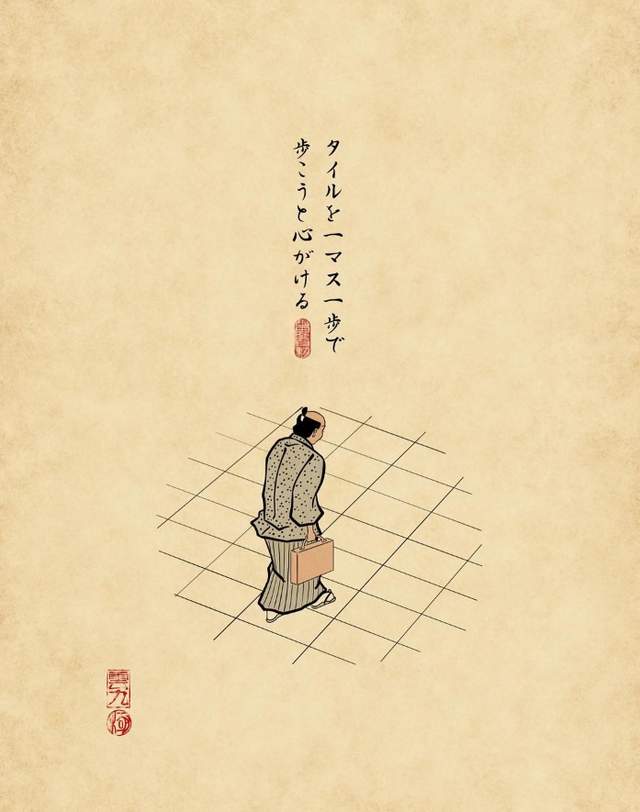 タイルを一マス一歩で
歩こうと心がける